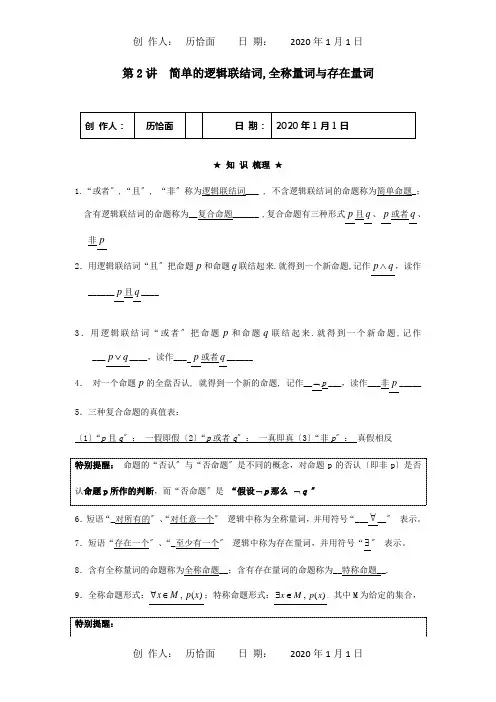 创 作人： 历恰面 日 期： 2020年1月1日
第2讲 简单的逻辑联结词,全称量词与存在量词
创 作人： 历恰面 日 期： 2020年1月1日
★ 知 识 梳理 ★
1.“或者〞,“且〞, “非〞称为逻辑联结词___ , 不含逻辑联结词的命题称为简单命题_;
含有逻辑联结词的命题称为__复合命题______ ,复合命题有三种形式p且q、p或者q、
非p
2．用逻辑联结词“且〞把命题p和命题q联结起来.就得到一个新命题,记作p∧q，读作
______p且q____
3．用逻辑联结词“或者〞把命题p和命题q联结起来.就得到一个新命题,记作
___p∨q____，读作____p或者q______
4． 对一个命题p的全盘否认, 就得到一个新的命题, 记作__￢p___，读作___非p_____
5．三种复合命题的真值表：
〔1〕“p且q〞： 一假即假〔2〕“p或者q〞： 一真即真〔3〕“非p〞： 真假相反
特别提醒： 命题的“否认〞与“否命题〞是不同的概念，对命题p的否认〔即非p〕是否
认命题p所作的判断，而“否命题〞是 “假设￢p那么 ￢q 〞
6．短语“_对所有的〞、“对任意一个〞 逻辑中称为全称量词，并用符号“___∀__〞 表示。
7．短语“存在一个〞、“_至少有一个〞 逻辑中称为存在量词，并用符号“∃〞 表示。
8．含有全称量词的命题称为全称命题__；含有存在量词的命题称为__特称命题__.
9．全称命题形式：∀x∈M，p(x)；特称命题形式：∃x∈M，p(x) 其中M为给定的集合，
特别提醒：
创 作人： 历恰面 日 期： 2020年1月1日